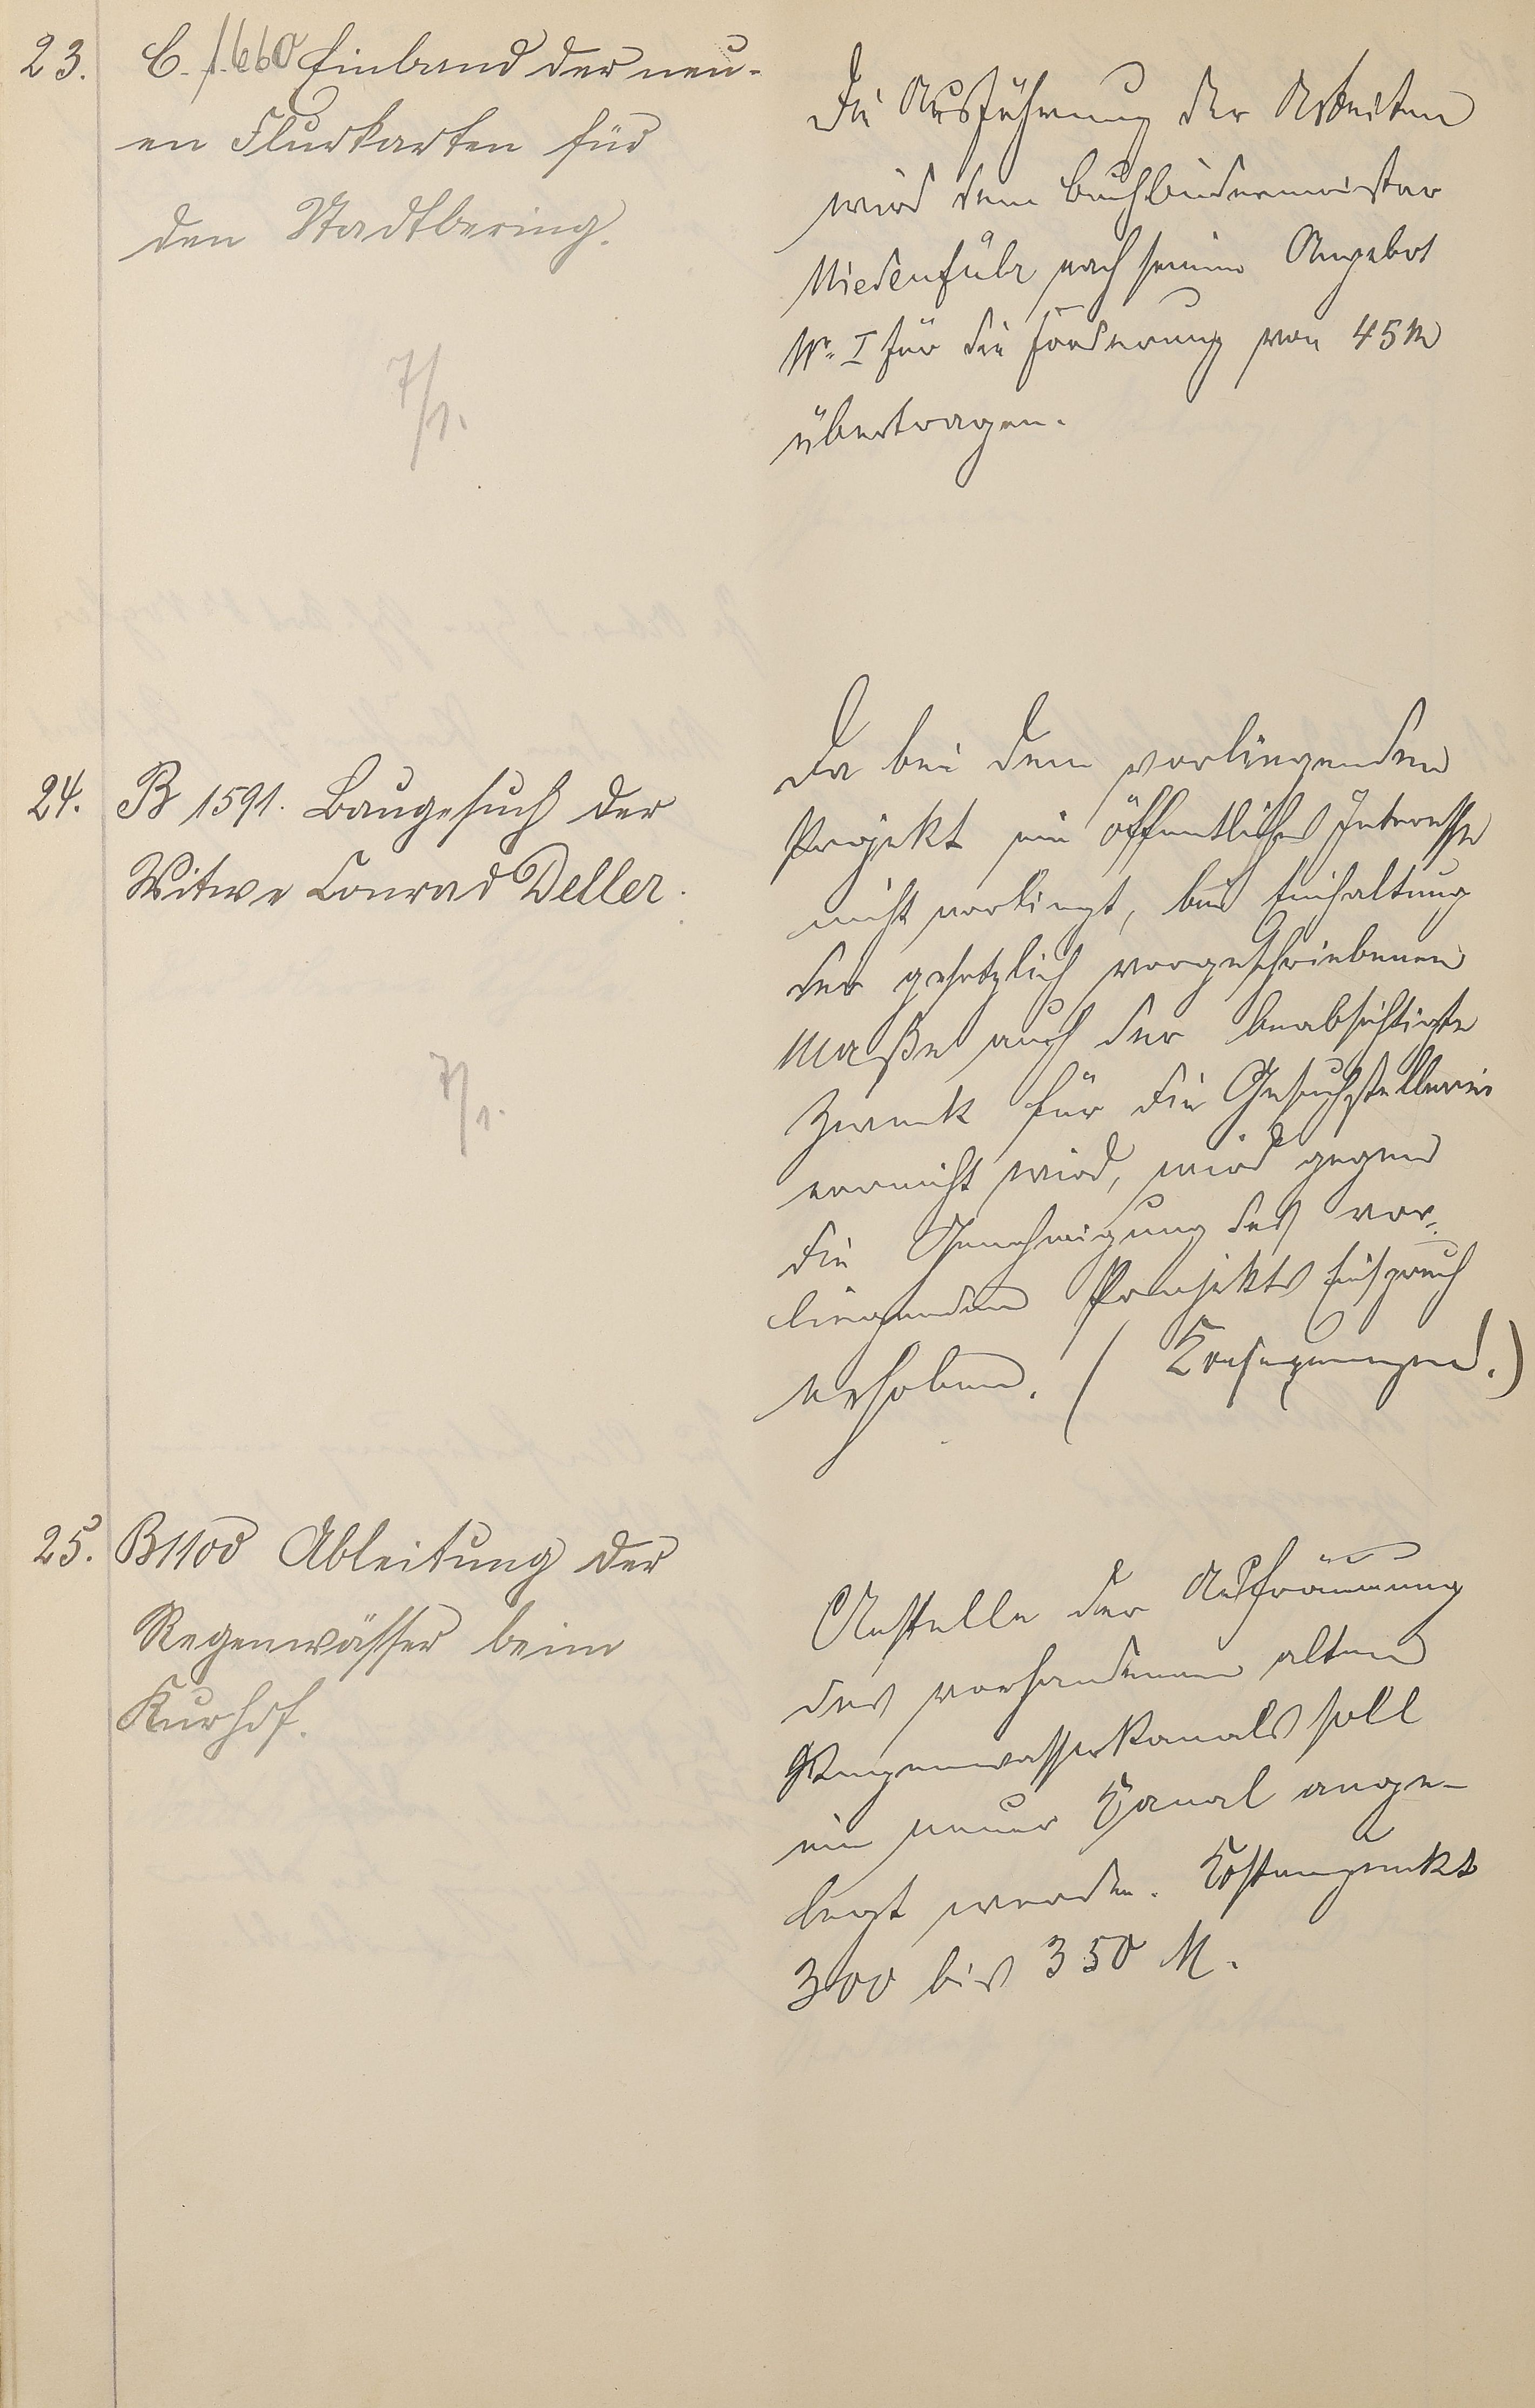 23.
C. 1660 Einband der neu-
en Flurkarten für
den Stadtbering.
7/1.
Die Ausführung der Arbeiten
wird dem Buchbindermeister
Niedenführ nach seinem Angebot
Nr. I für die Forderung von 45 M
übertragen.
24.
B 1591. Baugesuch der
Witwe Conrad Deller.
7/1.
Da bei dem vorliegenden
Projekt ein öffentliches Interesse
nicht vorliegt, bei Einhaltung
der gesetzlich vorgeschriebenen
Maße auch der beabsichtigte
Zweck für die Gesuchstellerin
erreicht wird, wird gegen
die Genehmigung des vor-
liegenden Projekts Einspruch
erhoben. (Konsequenzen.)
25.
B 1100 Ableitung der
Regenwässer beim
Kurhof.
Anstelle der Aufräumung
des vorhandenen alten
Regenwasserkanals soll
ein neuer Kanal ange-
legt werden. Kostenpunkt
300 bis 350 M.